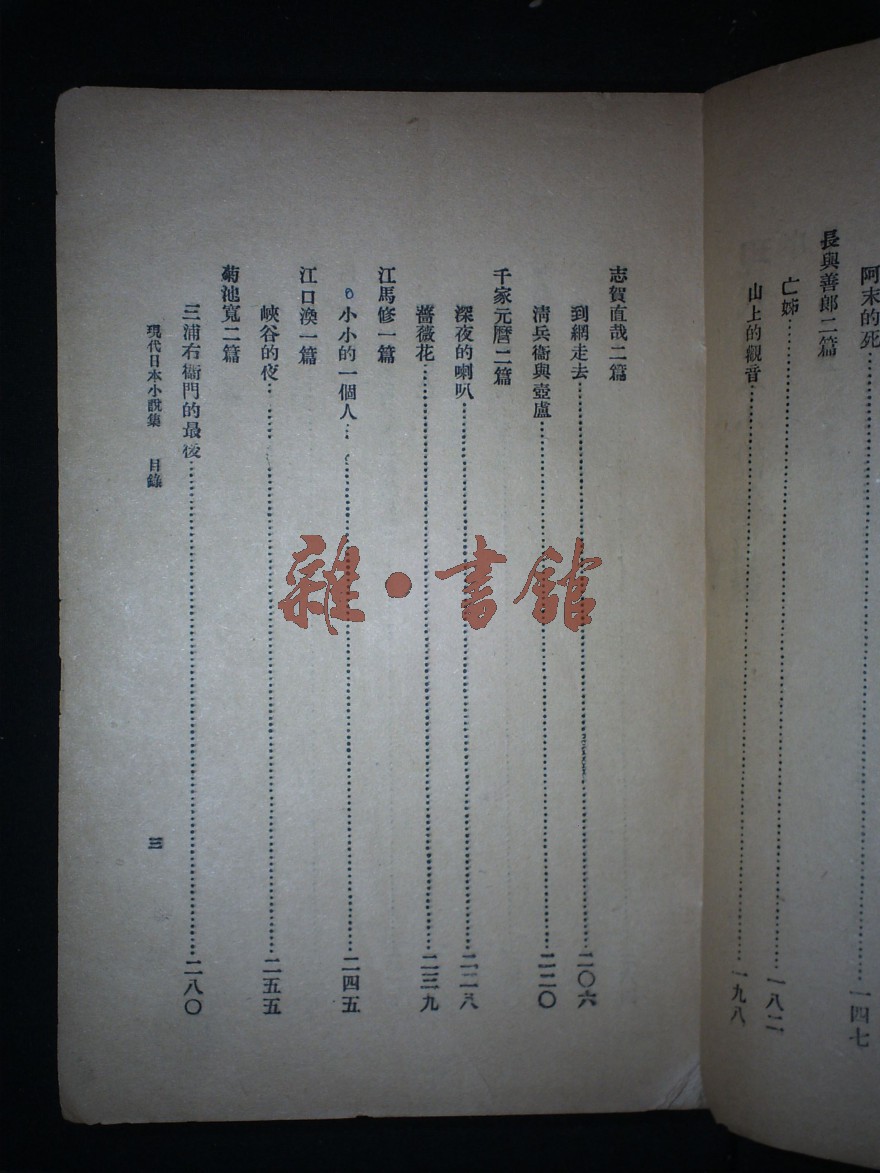 阿末的死……一四七
長與善郎二篇
亡姊……一八二
山上的觀音……一九八
志賀直哉二篇
到網走去……二〇六
清兵衞與壺盧……二二〇
千家元麿二篇
深夜的喇叭……二二八
薔薇花……二三九
江馬修一篇
小小的一個人……二四五
江口渙一篇
峽谷的夜……二五五
菊池寬二篇
三浦右衞門的最後……二八〇
現代日本小說集　目錄
三
雜·書館